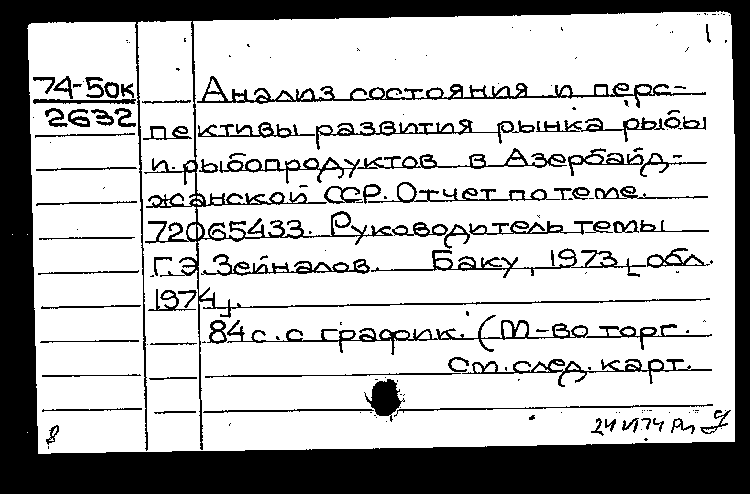 1
74-50к
2632
Анализ состояния и перс-
пективы развития рынка рыбы
и рыбопродуктов в Азербайд-
жанской ССР. Отчет по теме.
72065433. Руководитель темы
Г.Э. Зейналов. Баку, 1973 [обл.
1974].
84 с. с график. (М-во торг.
См. след. карт.
8
24 VI 74